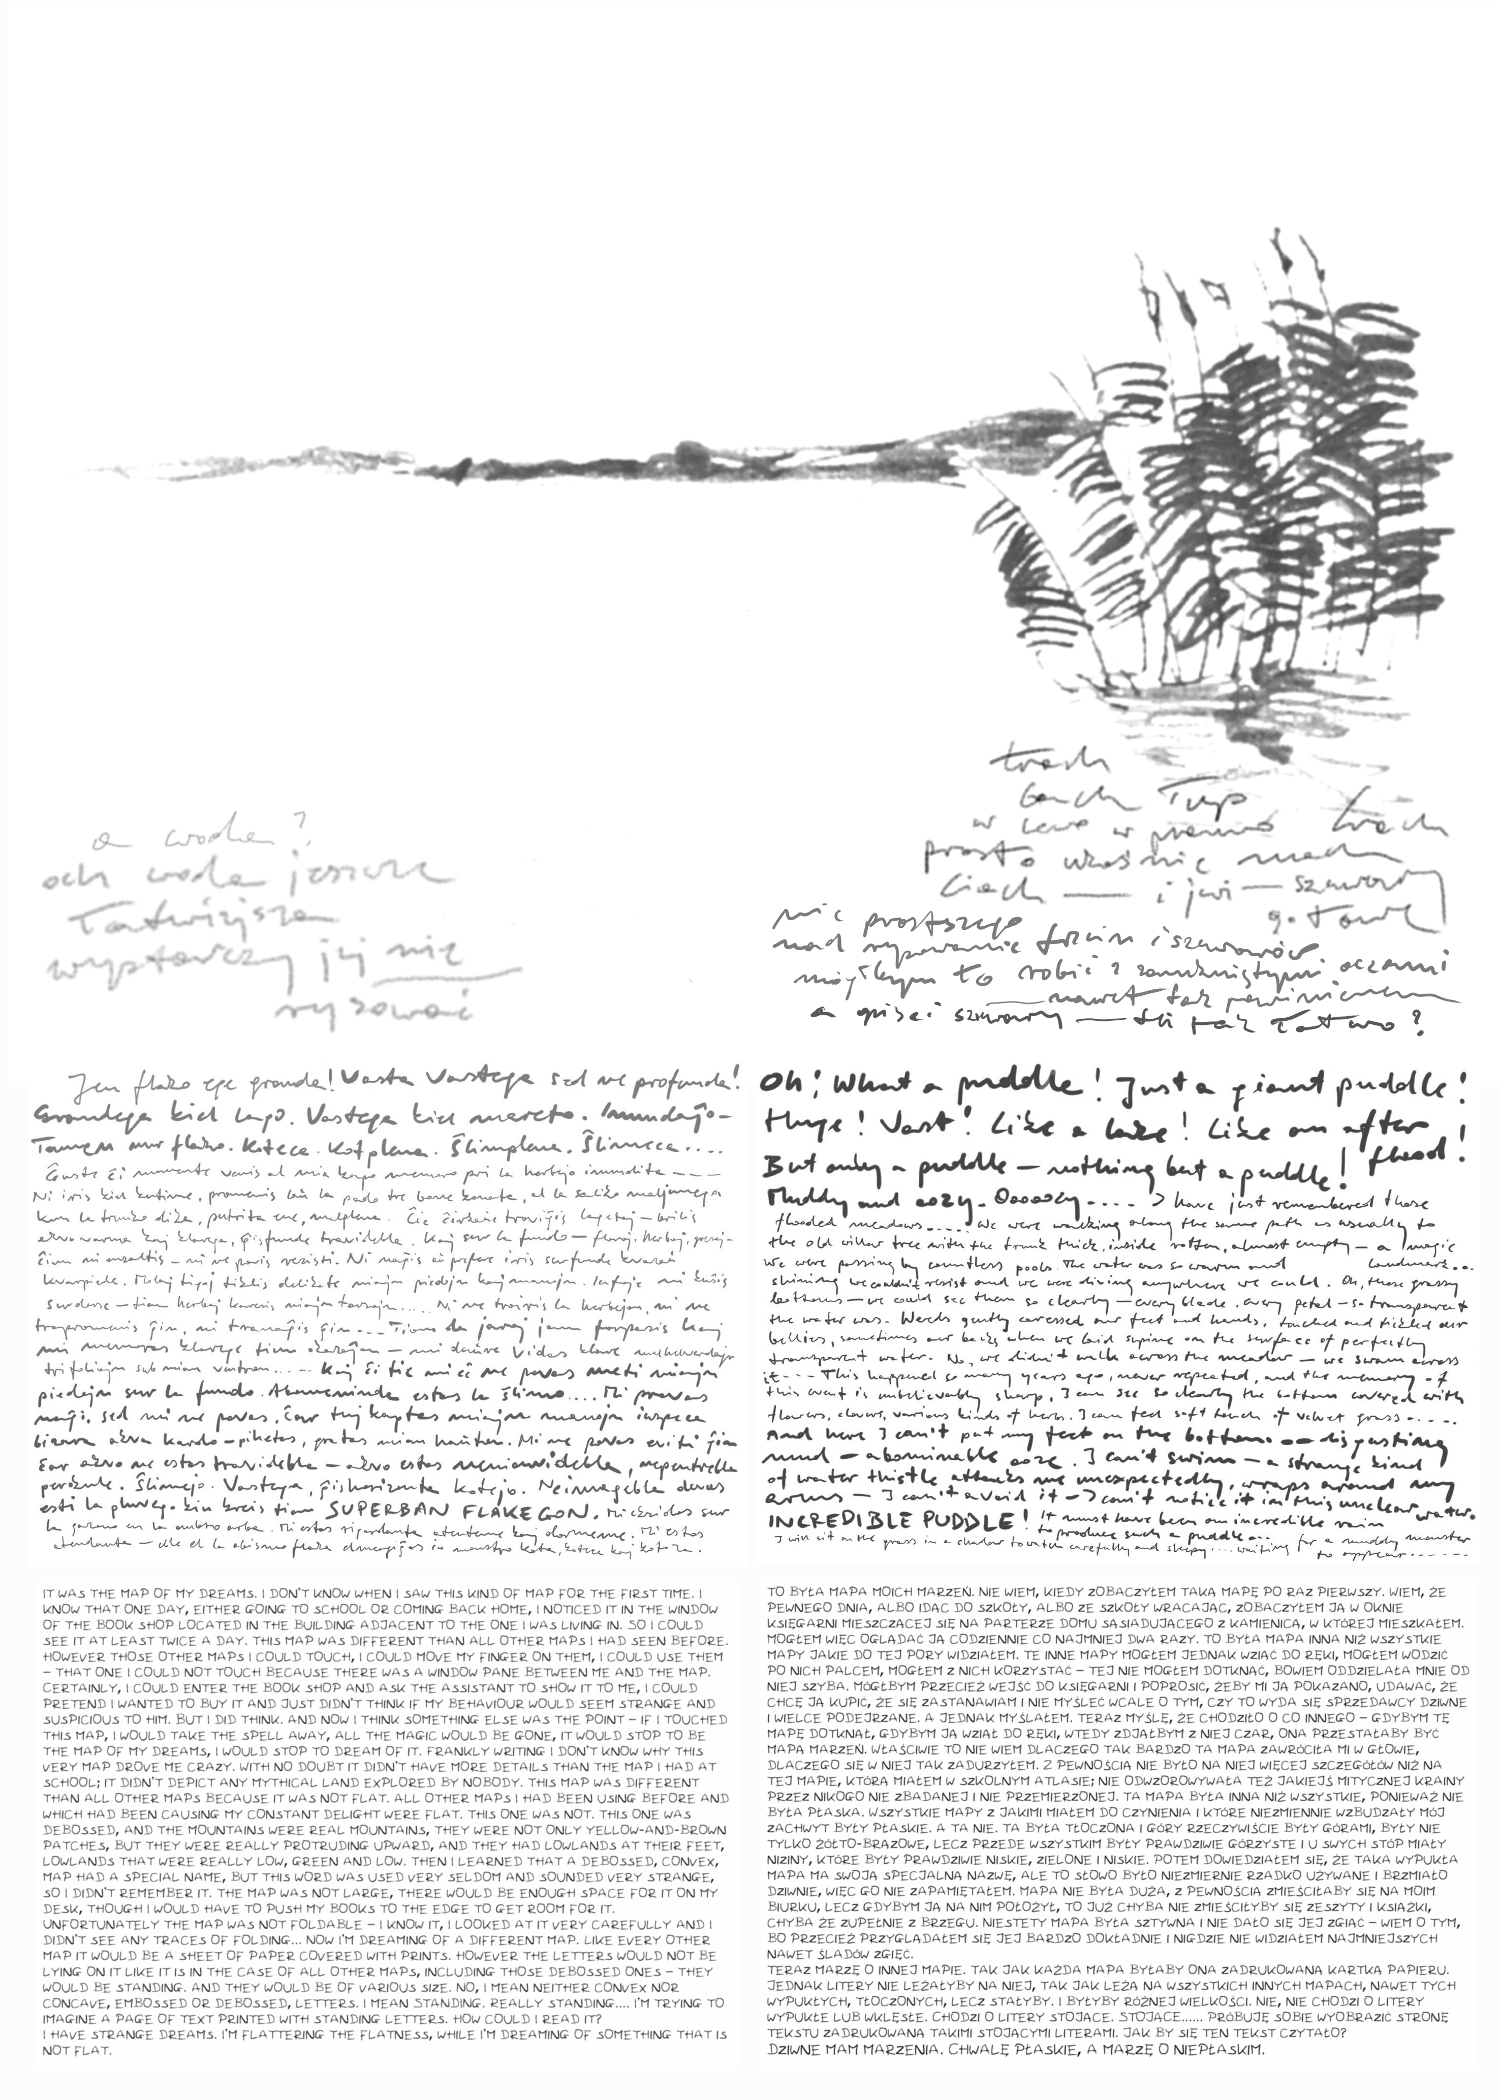 trach
bach łup
w lewo w prawo trach
prosto ukośnie mach
ciach — i już — szuwary
gotowe
nic prostszego
nad rysowanie trzcin i szuwarów
mógłbym to robić z zamkniętymi oczami
— nawet tak powinienem
a pisać szuwary — tak łatwo?
a woda?
och woda jeszcze
łatwiejsza
wystarczy jej nie
rysować
Jen flako ege granda! Vasta Vastega sed ne profunda!
Grandega kiel lago. Vastega kiel mareto. Inundaĵo–
Tamen nur flako. Koteca. Kotplena. Ŝlimplena. Ŝlimeca....
Ĝuste ĉi momente venis al mia kapo memoro pri la herbejo inundita – – –
Ni iris kiel kutime, promenis laŭ la pado tre bone konata, al la saliko maljunega
kun la trunko dika, putrita ene, malplena. Ĉie ĉirkaŭe troviĝis lagetoj – brilis
akvo varma kaj klarega, ĝisfunde travidebla. Kaj sur la fundo – floroj, herboj,
ni ensaltis – ni ne povis rezisti. Ni naĝis aŭ prefere iris surfunde kvazaŭ
kvarpiede. Molaj tigoj tiklis delikate niajn piedojn kaj manojn. ni kuŝis
surdorse – tiam herboj karesis niajn dorsojn.... Ni ne trairis la herbejon, ni ne
trapromenis ĝin, ni tranaĝis ĝin... Tiom da jaroj jam forpasis kaj
mi memoras klarege tiun okazaĵon – mi daŭre vidas klare
trifoliojn sub mian ventron..... Kaj ĉi tie mi eĉ ne povas meti miajn
piedojn sur la fundo. Abomeninda estas la ŝlimo.... Mi provas
naĝi, sed mi ne povas, ĉar tuj kaptas miajn manojn iuspeca
bizara akva kardo – piketas, gratas mian haŭton. Mi ne povas eviti ĝin
ĉar akvo ne estas travidebla – akvo estas nenionvidebla, nepenetrebla
perokule. Ŝlimejo. Vastega, ĝishorizonta kotejo. Neimagebla devas
esti la pluvego kiu kreis tian SUPERBAN FLAKEGON. Mi eksidos sur
la gazono en la ombro arba. Mi estos rigardanta atenteme kaj dormeme. Mi estos
atendanta – ĉu el la abismo flaka elmerĝiĝos ia monstro kota, koteca kaj kotoza.
Oh! What a puddle! Just a giant puddle!
Huge! Vast! Like a lake! Like an after
flood!
But only a puddle – nothing but a puddle!
Muddy and oozy. Ooooozy.... I have just remembered those
flooded meadows.... We were walking along the same path as usually to
the old willow tree with the trunk thick, inside rotten, almost empty – a magic
landmark...
We were passing by countless pools. The water was so warm and
shining we couldn't resist and we were diving anywhere we could. Oh, those grassy
bottoms – we could see them so clearly – every blade, every petal – so transparent
the water was. Weeds gently caressed our feet and hands, touched and tickled our
bellies, sometimes our backs when we laid supine on the surface of perfectly
transparent water. No, we didn't walk across the meadow – we swam across
it.... This happened so many years ago, never repeated, and the memory of
this event is unbelievably sharp, I can see so clearly the bottom covered with
flowers, clovers, various kinds of herbs. I can feel soft touch of velvet grass.....
And here I can't put my feet on the bottom – disgusting
mud – abominable ooze. I can't swim – a strange kind
of water thistle attacks me unexpectedly, wraps around my
arms – I can't avoid it – I can't notice it in this unclear water.
INCREDIBLE PUDDLE! It must have been an incredible rain
to produce such a puddle...
I will sit on the grass in a shadow to watch carefully and sleepy.... waiting for a muddy monster
to appear......
IT WAS THE MAP OF MY DREAMS. I DON'T KNOW WHEN I SAW THIS KIND OF MAP FOR THE FIRST TIME. I
KNOW THAT ONE DAY, EITHER GOING TO SCHOOL OR COMING BACK HOME, I NOTICED IT IN THE WINDOW
OF THE BOOK SHOP LOCATED IN THE BUILDING ADJACENT TO THE ONE I WAS LIVING IN. SO I COULD
SEE IT AT LEAST TWICE A DAY. THIS MAP WAS DIFFERENT THAN ALL OTHER MAPS I HAD SEEN BEFORE.
HOWEVER THOSE OTHER MAPS I COULD TOUCH, I COULD MOVE MY FINGER ON THEM, I COULD USE THEM
– THAT ONE I COULD NOT TOUCH BECAUSE THERE WAS A WINDOW PANE BETWEEN ME AND THE MAP.
CERTAINLY, I COULD ENTER THE BOOK SHOP AND ASK THE ASSISTANT TO SHOW IT TO ME, I COULD
PRETEND I WANTED TO BUY IT AND JUST DIDN'T THINK IF MY BEHAVIOUR WOULD SEEM STRANGE AND
SUSPICIOUS TO HIM. BUT I DID THINK. AND NOW I THINK SOMETHING ELSE WAS THE POINT – IF I TOUCHED
THIS MAP, I WOULD TAKE THE SPELL AWAY, ALL THE MAGIC WOULD BE GONE, IT WOULD STOP TO BE
THE MAP OF MY DREAMS, I WOULD STOP TO DREAM OF IT. FRANKLY WRITING I DON'T KNOW WHY THIS
VERY MAP DROVE ME CRAZY. WITH NO DOUBT IT DIDN'T HAVE MORE DETAILS THAN THE MAP I HAD AT
SCHOOL; IT DIDN'T DEPICT ANY MYTHICAL LAND EXPLORED BY NOBODY. THIS MAP WAS DIFFERENT
THAN ALL OTHER MAPS BECAUSE IT WAS NOT FLAT. ALL OTHER MAPS I HAD BEEN USING BEFORE AND
WHICH HAD BEEN CAUSING MY CONSTANT DELIGHT WERE FLAT. THIS ONE WAS NOT. THIS ONE WAS
DEBOSSED, AND THE MOUNTAINS WERE REAL MOUNTAINS, THEY WERE NOT ONLY YELLOW-AND-BROWN
PATCHES, BUT THEY WERE REALLY PROTRUDING UPWARD, AND THEY HAD LOWLANDS AT THEIR FEET,
LOWLANDS THAT WERE REALLY LOW, GREEN AND LOW. THEN I LEARNED THAT A DEBOSSED, CONVEX,
MAP HAD A SPECIAL NAME, BUT THIS WORD WAS USED VERY SELDOM AND SOUNDED VERY STRANGE,
SO I DIDN'T REMEMBER IT. THE MAP WAS NOT LARGE, THERE WOULD BE ENOUGH SPACE FOR IT ON MY
DESK, THOUGH I WOULD HAVE TO PUSH MY BOOKS TO THE EDGE TO GET ROOM FOR IT.
UNFORTUNATELY THE MAP WAS NOT FOLDABLE – I KNOW IT, I LOOKED AT IT VERY CAREFULLY AND I
DIDN'T SEE ANY TRACES OF FOLDING... NOW I'M DREAMING OF A DIFFERENT MAP. LIKE EVERY OTHER
MAP IT WOULD BE A SHEET OF PAPER COVERED WITH PRINTS. HOWEVER THE LETTERS WOULD NOT BE
LYING ON IT LIKE IT IS IN THE CASE OF ALL OTHER MAPS, INCLUDING THOSE DEBOSSED ONES – THEY
WOULD BE STANDING. AND THEY WOULD BE OF VARIOUS SIZE. NO, I MEAN NEITHER CONVEX NOR
CONCAVE, EMBOSSED OR DEBOSSED, LETTERS. I MEAN STANDING. REALLY STANDING.... I'M TRYING TO
IMAGINE A PAGE OF TEXT PRINTED WITH STANDING LETTERS. HOW COULD I READ IT?
I HAVE STRANGE DREAMS. I'M FLATTERING THE FLATNESS, WHILE I'M DREAMING OF SOMETHING THAT IS
NOT FLAT.
TO BYŁA MAPA MOICH MARZEŃ. NIE WIEM, KIEDY ZOBACZYŁEM TAKĄ MAPĘ PO RAZ PIERWSZY. WIEM, ŻE
PEWNEGO DNIA, ALBO IDĄC DO SZKOŁY, ALBO ZE SZKOŁY WRACAJĄC, ZOBACZYŁEM JĄ W OKNIE
KSIĘGARNI MIESZCZĄCEJ SIĘ NA PARTERZE DOMU SĄSIADUJĄCEGO Z KAMIENICĄ, W KTÓREJ MIESZKAŁEM.
MOGŁEM WIĘC OGLĄDAĆ JĄ CODZIENNIE CO NAJMNIEJ DWA RAZY. TO BYŁA MAPA INNA NIŻ WSZYSTKIE
MAPY JAKIE DO TEJ PORY WIDZIAŁEM. TE INNE MAPY MOGŁEM JEDNAK WZIĄĆ DO RĘKI, MOGŁEM WODZIĆ
PO NICH PALCEM, MOGŁEM Z NICH KORZYSTAĆ – TEJ NIE MOGŁEM DOTKNĄĆ, BOWIEM ODDZIELAŁA MNIE OD
NIEJ SZYBA. MÓGŁBYM PRZECIEŻ WEJŚĆ DO KSIĘGARNI I POPROSIĆ, ŻEBY MI JĄ POKAZANO, UDAWAĆ, ŻE
CHCĘ JĄ KUPIĆ, ŻE SIĘ ZASTANAWIAM I NIE MYŚLEĆ WCALE O TYM, CZY TO WYDA SIĘ SPRZEDAWCY DZIWNE
I WIELCE PODEJRZANE. A JEDNAK MYŚLAŁEM. TERAZ MYŚLĘ, ŻE CHODZIŁO O CO INNEGO – GDYBYM TĘ
MAPĘ DOTKNĄŁ, GDYBYM JĄ WZIĄŁ DO RĘKI, WTEDY ZDJĄŁBYM Z NIEJ CZAR, ONA PRZESTAŁABY BYĆ
MAPĄ MARZEŃ. WŁAŚCIWIE TO NIE WIEM DLACZEGO TAK BARDZO TA MAPA ZAWRÓCIŁA MI W GŁOWIE,
DLACZEGO SIĘ W NIEJ TAK ZADURZYŁEM. Z PEWNOŚCIĄ NIE BYŁO NA NIEJ WIĘCEJ SZCZEGÓŁÓW NIŻ NA
TEJ MAPIE, KTÓRĄ MIAŁEM W SZKOLNYM ATLASIE; NIE ODWZOROWYWAŁA TEŻ JAKIEJŚ MITYCZNEJ KRAINY
PRZEZ NIKOGO NIE ZBADANEJ I NIE PRZEMIERZONEJ. TA MAPA BYŁA INNA NIŻ WSZYSTKIE, PONIEWAŻ NIE
BYŁA PŁASKA. WSZYSTKIE MAPY Z JAKIMI MIAŁEM DO CZYNIENIA I KTÓRE NIEZMIENNIE WZBUDZAŁY MÓJ
ZACHWYT BYŁY PŁASKIE. A TA NIE. TA BYŁA TŁOCZONA I GÓRY RZECZYWIŚCIE BYŁY GÓRAMI, BYŁY NIE
TYLKO ŻÓŁTO-BRĄZOWE, LECZ PRZEDE WSZYSTKIM BYŁY PRAWDZIWIE GÓRZYSTE I U SWYCH STÓP MIAŁY
NIZINY, KTÓRE BYŁY PRAWDZIWIE NISKIE, ZIELONE I NISKIE. POTEM DOWIEDZIAŁEM SIĘ, ŻE TAKA WYPUKŁA
MAPA MA SWOJĄ SPECJALNĄ NAZWĘ, ALE TO SŁOWO BYŁO NIEZMIERNIE RZADKO UŻYWANE I BRZMIAŁO
DZIWNIE, WIĘC GO NIE ZAPAMIĘTAŁEM. MAPA NIE BYŁA DUŻA, Z PEWNOŚCIĄ ZMIEŚCIŁABY SIĘ NA MOIM
BIURKU, LECZ GDYBYM JĄ NA NIM POŁOŻYŁ, TO JUŻ CHYBA NIE ZMIEŚCIŁYBY SIĘ ZESZYTY I KSIĄŻKI,
CHYBA ŻE ZUPEŁNIE Z BRZEGU. NIESTETY MAPA BYŁA SZTYWNA I NIE DAŁO SIĘ JEJ ZGIĄĆ – WIEM O TYM,
BO PRZECIEŻ PRZYGLĄDAŁEM SIĘ JEJ BARDZO DOKŁADNIE I NIGDZIE NIE WIDZIAŁEM NAJMNIEJSZYCH
NAWET ŚLADÓW ZGIĘĆ.
TERAZ MARZĘ O INNEJ MAPIE. TAK JAK KAŻDA MAPA BYŁABY ONA ZADRUKOWANĄ KARTKĄ PAPIERU.
JEDNAK LITERY NIE LEŻAŁYBY NA NIEJ, TAK JAK LEŻĄ NA WSZYSTKICH INNYCH MAPACH, NAWET TYCH
WYPUKŁYCH, TŁOCZONYCH, LECZ STAŁYBY. I BYŁYBY RÓŻNEJ WIELKOŚCI. NIE, NIE CHODZI O LITERY
WYPUKŁE LUB WKLĘSŁE. CHODZI O LITERY STOJĄCE. STOJĄCE...... PRÓBUJĘ SOBIE WYOBRAZIĆ STRONĘ
TEKSTU ZADRUKOWANĄ TAKIMI STOJĄCYMI LITERAMI. JAK BY SIĘ TEN TEKST CZYTAŁO?
DZIWNE MAM MARZENIA. CHWALĘ PŁASKIE, A MARZĘ O NIEPŁASKIM.